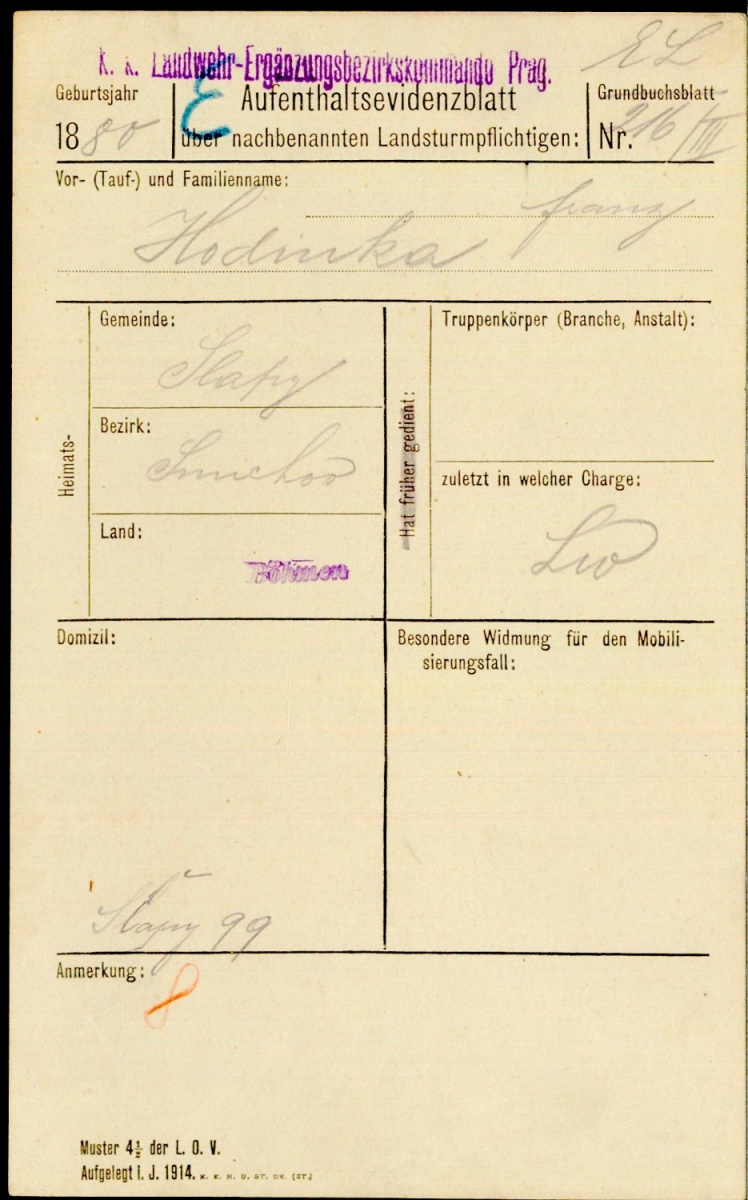 k. k. Landwehr-Ergänzungsbezirkskommando Prag.
EL
Geburtsjahr
1880
E
Aufenthaltsevidenzblatt
über nachbenannten Landsturmpflichtigen:
Grundbuchsblatt
Nr. 216/III
Vor- (Tauf-) und Familienname:
franz
Hodinka
Heimats-
Gemeinde:
Slapy
Bezirk:
Smichov
Land:
Böhmen
Hat früher gedient:
Truppenkörper (Branche, Anstalt):
zuletzt in welcher Charge:
Domizil:
Slapy 99
Besondere Widmung für den Mobili-
sierungsfall:
Anmerkung:
8
Muster 4½ der L. O. V.
Aufgelegt i. J. 1914. K. K. H. U. ST. DR. (ST.)